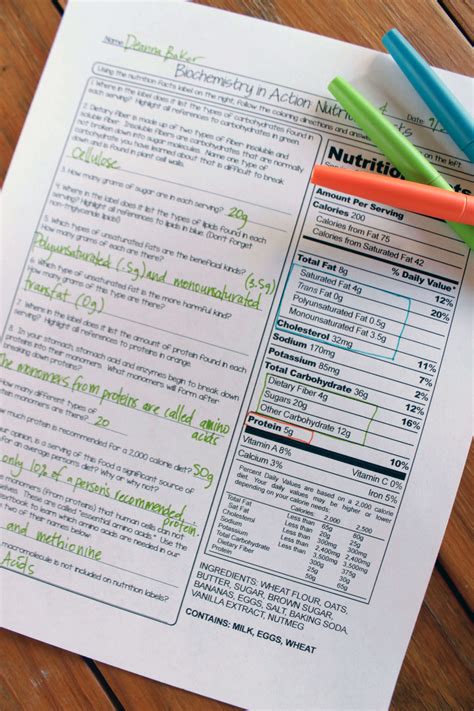 Name Deanna Baker
Date 9/2
Biochemistry in Action Nutrition
Using the nutrition Facts label on the right, Follow the coloring directions and answer on the left.
1. Where in the label does it list the types of carbohydrates found in
each serving? Highlight all references to carbohydrates in green.
2. Dietary Fiber is made up of two types of Fiber: insoluble and
soluble Fiber. Insoluble Fibers are carbohydrates that are normally
broken down into sugar molecules. Name one
carbohydrate you have learned about that is difficult to break
down and is found in plant cell walls.
Cellulose
3. How many grams of sugar are in each serving? 20g
4. Where in the label does it list the types of lipids found in each
serving? Highlight all references to lipids in blue. (Don't Forget
non-triglyceride lipids!)
5. Which types of unsaturated Fats are the beneficial kinds?
How many grams of each are there? (3.5g)
Polyunsaturated (.5g) and monounsaturated
6. Which type of unsaturated Fat is the more harmful kind?
How many grams of this type are there?
Transfat (0g)
7. Where in the label does it list the amount of protein found in
each serving? Highlight all references to proteins in orange.
8. In your stomach, stomach acid and enzymes begin to break down
proteins into their monomers. What monomers will Form after
breaking down proteins?
The monomers from proteins are called amino
acids
How many different types of
monomers are there? 20
much protein is recommended For a 2,000 calorie diet? 50g
your opinion, is a serving of this Food a significant source of
For an average person's diet? Why or why not?
only 10% of a persons recommended
protein.
monomers (From proteins) that human cells can not
These are called "essential amino acids." Use the
work to learn which amino acids are needed in our
two of their names below.
and methionine
macromolecule is not included on nutrition labels?
Acids
Nutrition Facts
Amount Per Serving
Calories 200
Calories from Fat 75
Calories from Saturated Fat 42
% Daily Value*
Total Fat 8g 12%
Saturated Fat 4g 20%
Trans Fat 0g
Polyunsaturated Fat 0.5g
Monounsaturated Fat 3.5g
Cholesterol 32mg 11%
Sodium 170mg 7%
Potassium 85mg 2%
Total Carbohydrate 36g 12%
Dietary Fiber 4g 16%
Sugars 20g
Other Carbohydrate 12g
Protein 5g 10%
Vitamin A 8% Vitamin C 0%
Calcium 3% Iron 5%
Percent Daily Values are based on a 2,000 calorie
diet. Your daily values may be higher or lower
depending on your calorie needs:
Calories 2,000 2,500
Total Fat Less than 65g 80g
Sat Fat Less than 20g 25g
Cholesterol Less than 300mg 300mg
Sodium Less than 2,400mg 2,400mg
Total Carbohydrate 300g 375g
Dietary Fiber 25g 30g
Protein 50g 65g
INGREDIENTS: WHEAT FLOUR, OATS,
BUTTER, SUGAR, BROWN SUGAR,
BANANAS, EGGS, SALT, BAKING SODA,
VANILLA EXTRACT, NUTMEG
CONTAINS: MILK, EGGS, WHEAT